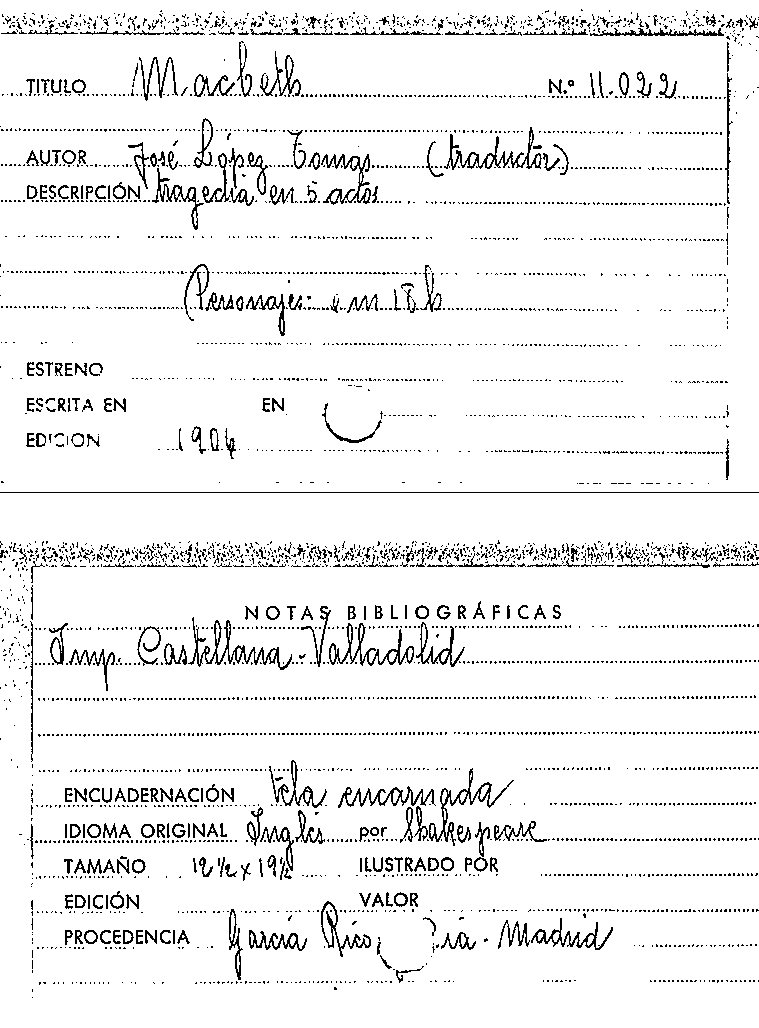 TITULO Macbeth N.º 11.022
AUTOR José López Tomas (traductor)
DESCRIPCIÓN tragedia en 5 actos
Personajes: m 18 h
ESTRENO
ESCRITA EN EN
EDICION 1904
NOTAS BIBLIOGRÁFICAS
Imp. Castellana - Valladolid
ENCUADERNACIÓN tela encarnada
IDIOMA ORIGINAL Inglés por Shakespeare
TAMAÑO 12 ½ x 19½ ILUSTRADO POR
EDICIÓN VALOR
PROCEDENCIA García Rico, - Madrid